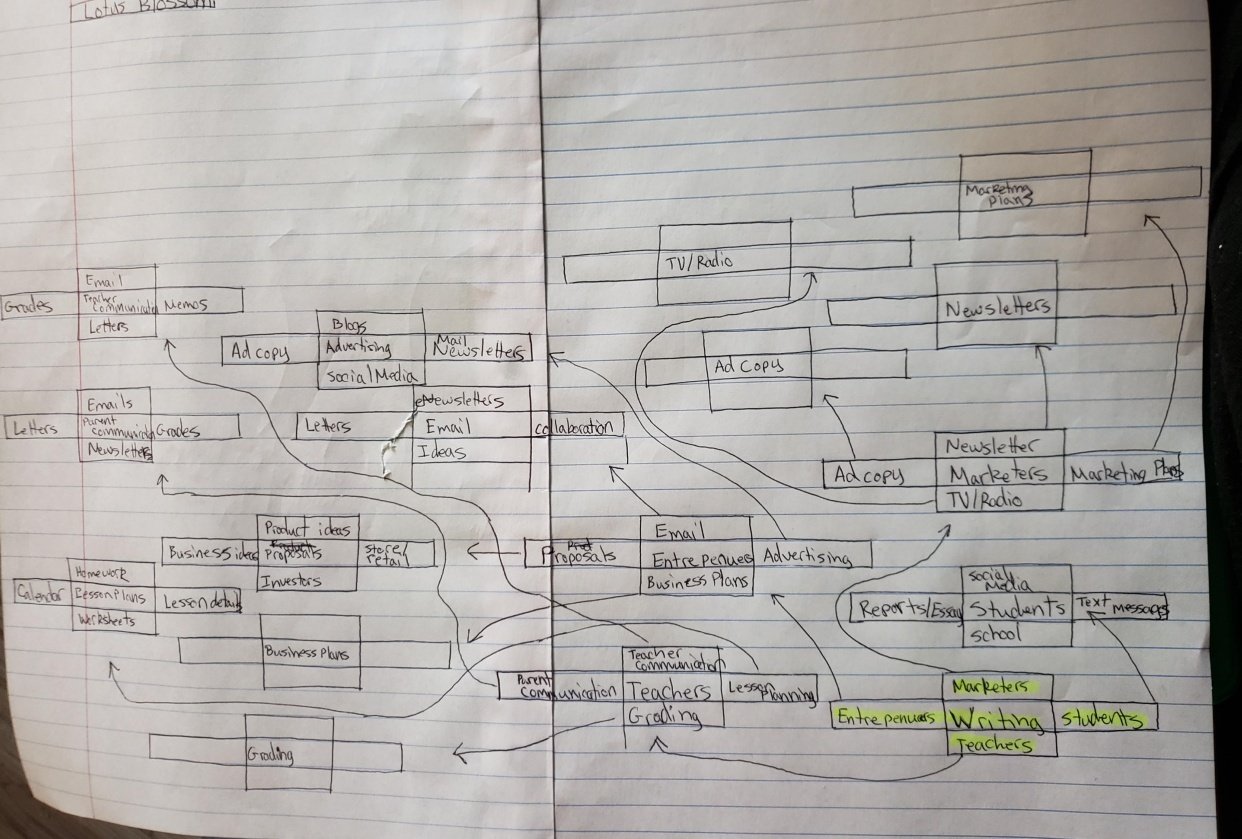 Lotus Blossom
Marketing
plans
TV/Radio
Newsletters
Ad copy
Newsletter
Ad copy
Marketers
Marketing Plans
TV/Radio
Email
Grades
Teacher
communication
Memos
Letters
Blogs
Ad copy
Advertising
Mail
Newsletters
Social Media
Emails
Letters
Parent
communication
Grades
Newsletters
eNewsletters
Letters
Email
Collaboration
Ideas
Product ideas
Business ideas
Proposals
store/
retail
Investors
Email
Proposals
Entrepenuers
Advertising
Business Plans
Homework
Calendar
Lesson Plans
Lesson details
Worksheets
Business Plans
Social
Media
Reports/Essay
Students
Text Messages
School
Teacher
communication
Parent
communication
Teachers
Lesson Planning
Grading
Grading
Marketers
Entrepenuers
Writing
Students
Teachers